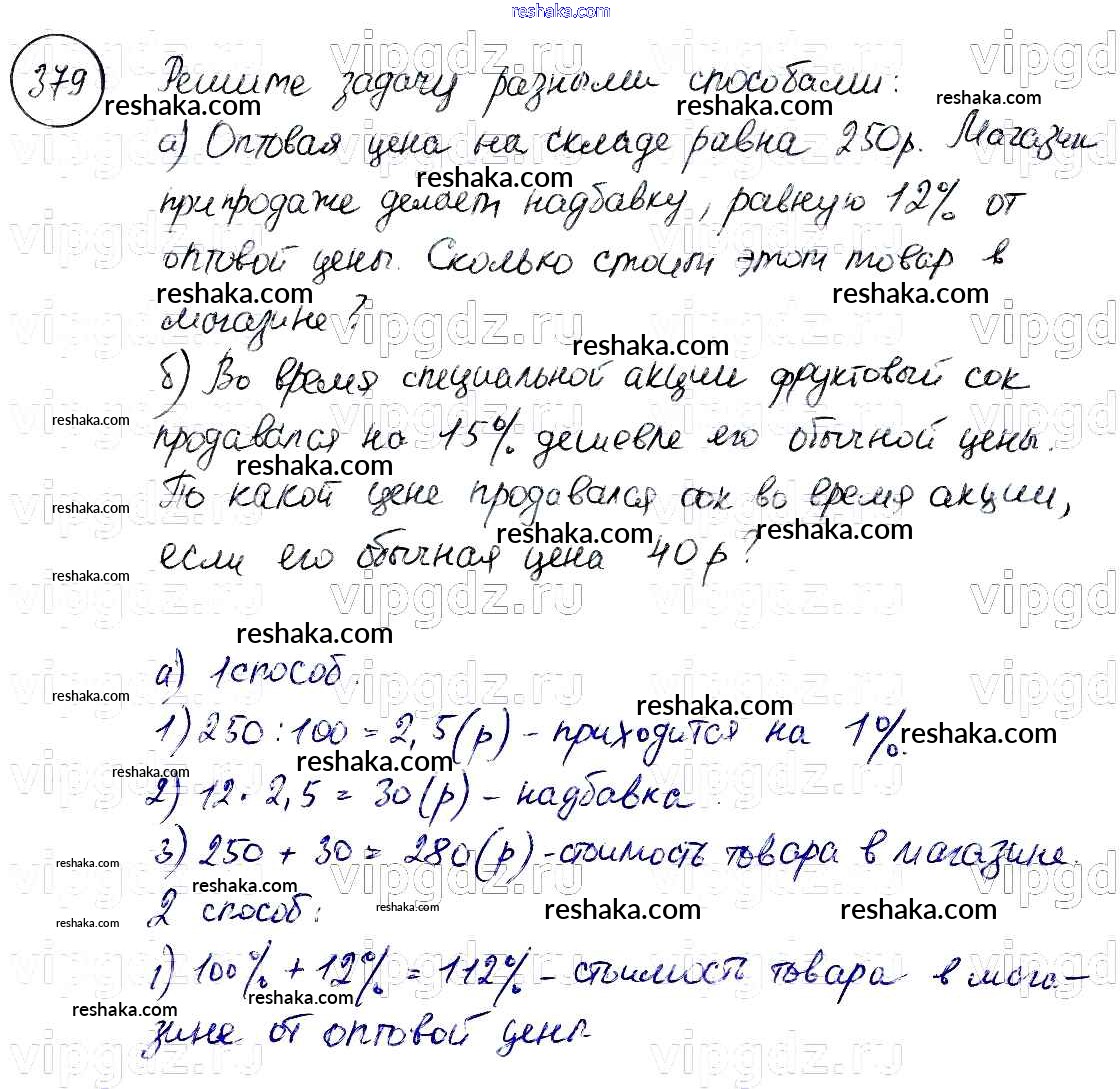 reshaka.com
379 Решите задачу разными способами:
а) Оптовая цена на складе равна 250р. Магазин
при продаже делает надбавку, равную 12% от
оптовой цены. Сколько стоит этот товар в
магазине?
б) Во время специальной акции фруктовый сок
продавался на 15% дешевле его обычной цены.
По какой цене продавался сок во время акции,
если его обычная цена 40р?
а) 1 способ.
1) 250 : 100 = 2,5 (р) - приходится на 1%.
2) 12 · 2,5 = 30 (р) - надбавка.
3) 250 + 30 = 280 (р) - стоимость товара в магазине.
2 способ:
1) 100% + 12% = 112% - стоимость товара в мага-
зине от оптовой цены.